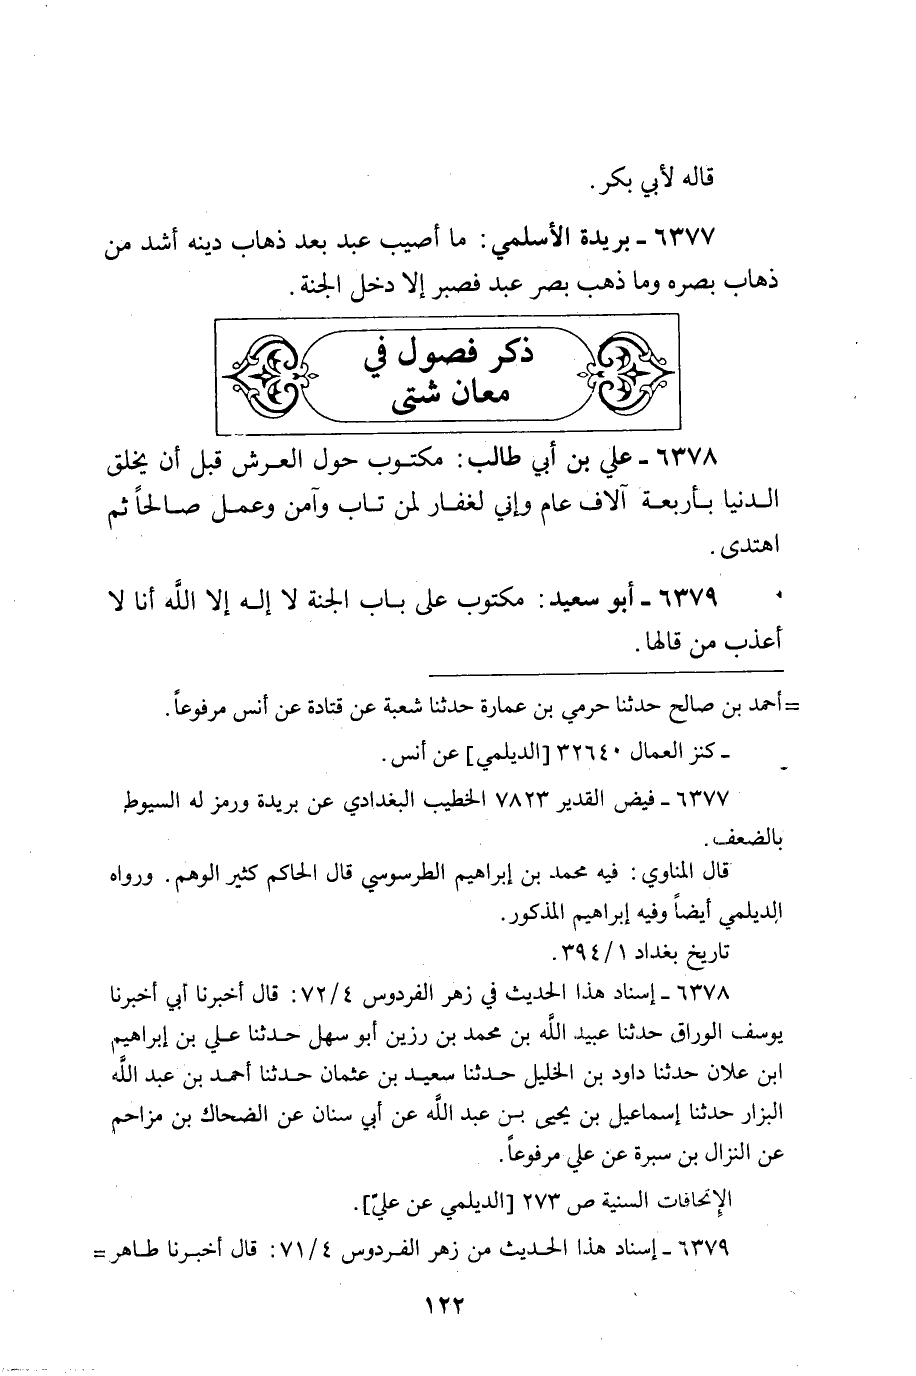 قاله لأبي بكر .
٦٣٧٧ ـ بريدة الأسلمي : ما أصيب عبد بعد ذهاب دينه أشد من
ذهاب بصره وما ذهب بصر عبد فصبر إلا دخل الجنة .
ذكر فصول في
معان شتى
٦٣٧٨ ـ علي بن أبي طالب : مكتوب حول العرش قبل أن يخلق
الدنيا بأربعة آلاف عام وإني لغفار لمن تاب وآمن وعمل صالحاً ثم
اهتدى .
٦٣٧٩ ـ أبو سعيد : مكتوب على باب الجنة لا إله إلا الله أنا لا
أعذب من قالها .
=أحمد بن صالح حدثنا حرمي بن عمارة حدثنا شعبة عن قتادة عن أنس مرفوعاً .
ـ كنز العمال ٣٢٦٤٠ [الديلمي] عن أنس .
٦٣٧٧ ـ فيض القدير ٧٨٢٣ الخطيب البغدادي عن بريدة ورمز له السيوطي
بالضعف .
قال المناوي : فيه محمد بن إبراهيم الطرسوسي قال الحاكم كثير الوهم . ورواه
الديلمي أيضاً وفيه إبراهيم المذكور .
تاريخ بغداد ١/ ٣٩٤ .
٦٣٧٨ ـ إسناد هذا الحديث في زهر الفردوس ٤/ ٧٢ : قال أخبرنا أبي أخبرنا
يوسف الوراق حدثنا عبيد الله بن محمد بن رزين أبو سهل حدثنا علي بن إبراهيم
ابن علان حدثنا داود بن الخليل حدثنا سعيد بن عثمان حدثنا أحمد بن عبد الله
البزار حدثنا إسماعيل بن يحيى بن عبد الله عن أبي سنان عن الضحاك بن مزاحم
عن النزال بن سبرة عن علي مرفوعاً .
الإتحافات السنية ص ٢٧٣ [الديلمي عن عليّ] .
٦٣٧٩ ـ إسناد هذا الحديث من زهر الفردوس ٤/ ٧١ : قال أخبرنا طاهر =
١٢٢